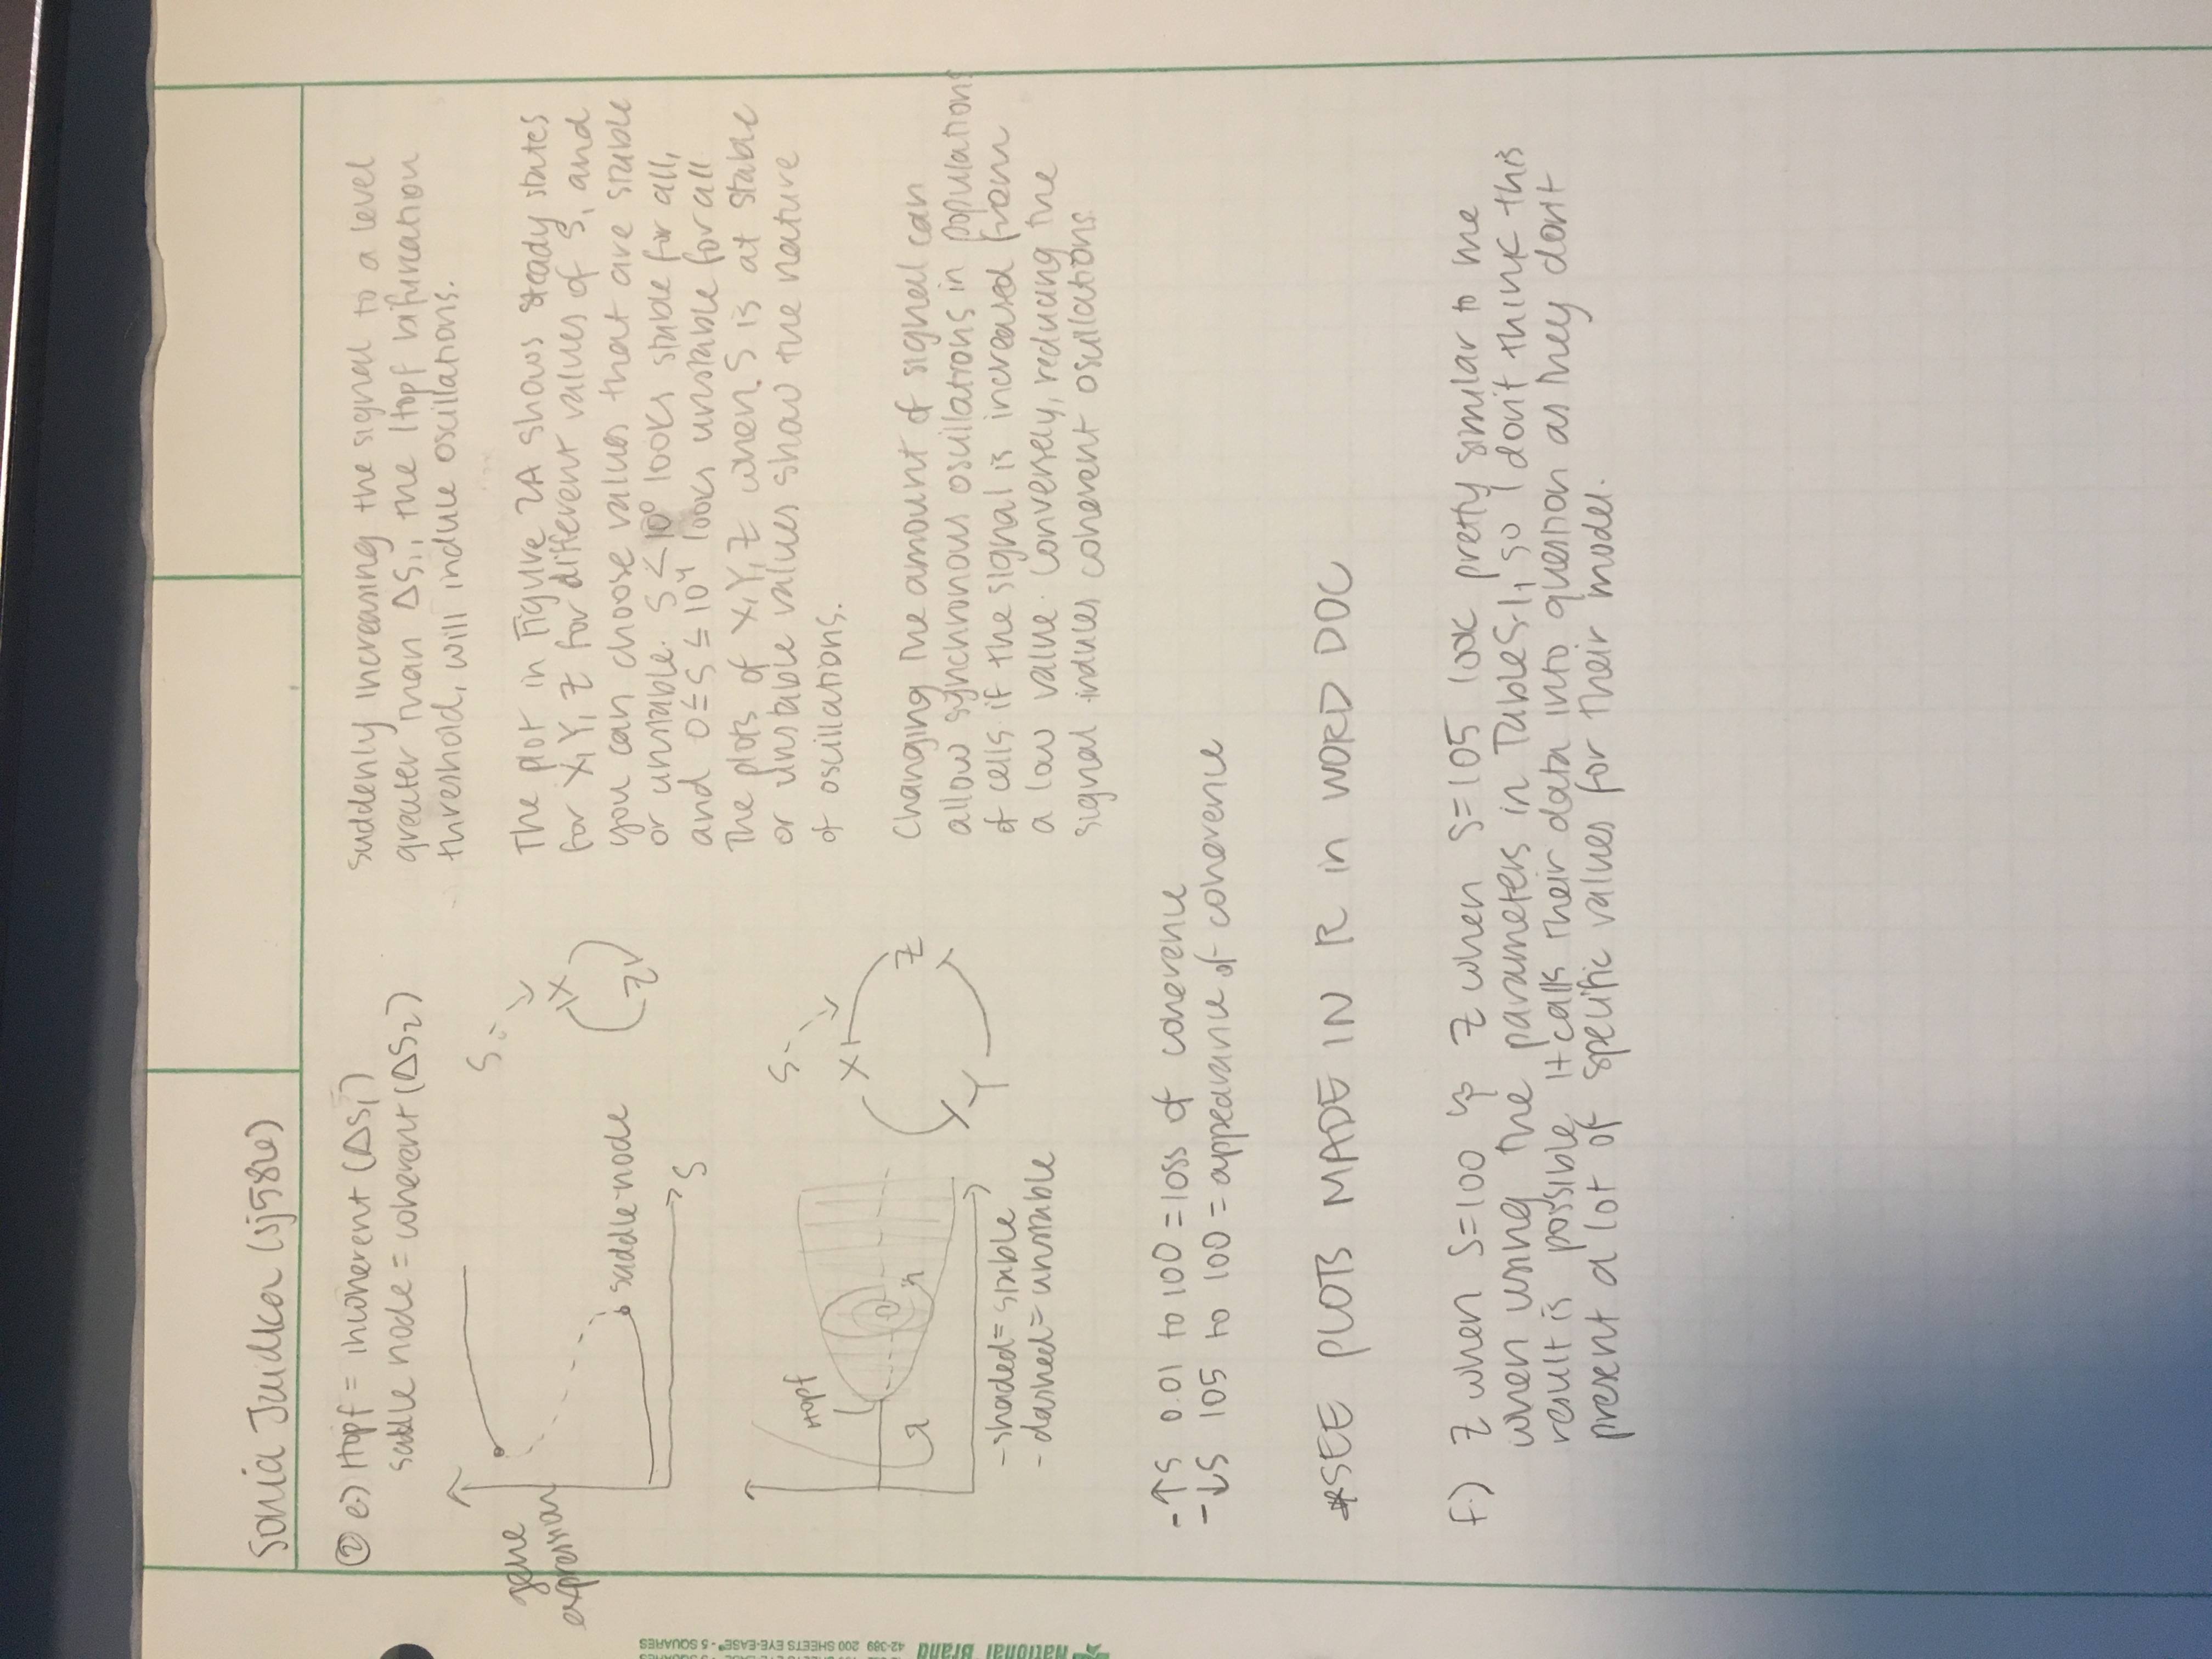 Sonia Juidka (sj586)
② e.) Hopf = incoherent (ΔS₁)
saddle node = coherent (ΔS₂)
gene
expression
saddle-node
S
S
X
Z
Hopf
S
X
Z
Y
-shaded = stable
-dashed = unstable
suddenly increasing the signal to a level
greater than ΔS₁, the Hopf bifurcation
threshold, will induce oscillations.
The plot in Figure 2A shows steady states
for X, Y, Z for different values of S, and
you can choose values that are stable
or unstable. S < 10⁰ looks stable for all,
and 0 ≤ S ≤ 10⁴ looks unstable for all
The plots of X, Y, Z when S is at stable
or unstable values show the nature
of oscillations.
Changing the amount of signal can
allow synchronous oscillations in populations
of cells if the signal is increased from
a low value. Conversely, reducing the
signal induces coherent oscillations
-↑S 0.01 to 100 = loss of coherence
-↓S 105 to 100 = appearance of coherence
*SEE PLOTS MADE IN R in WORD DOC
f.) Z when S=100 & Z when S=105 look pretty similar to me
when using the parameters in Table S-1, so I don't think this
result is possible. It calls their data into question as they don't
present a lot of specific values for their model.
National Brand
42-389 200 SHEETS EYE-EASE® - 5 SQUARES